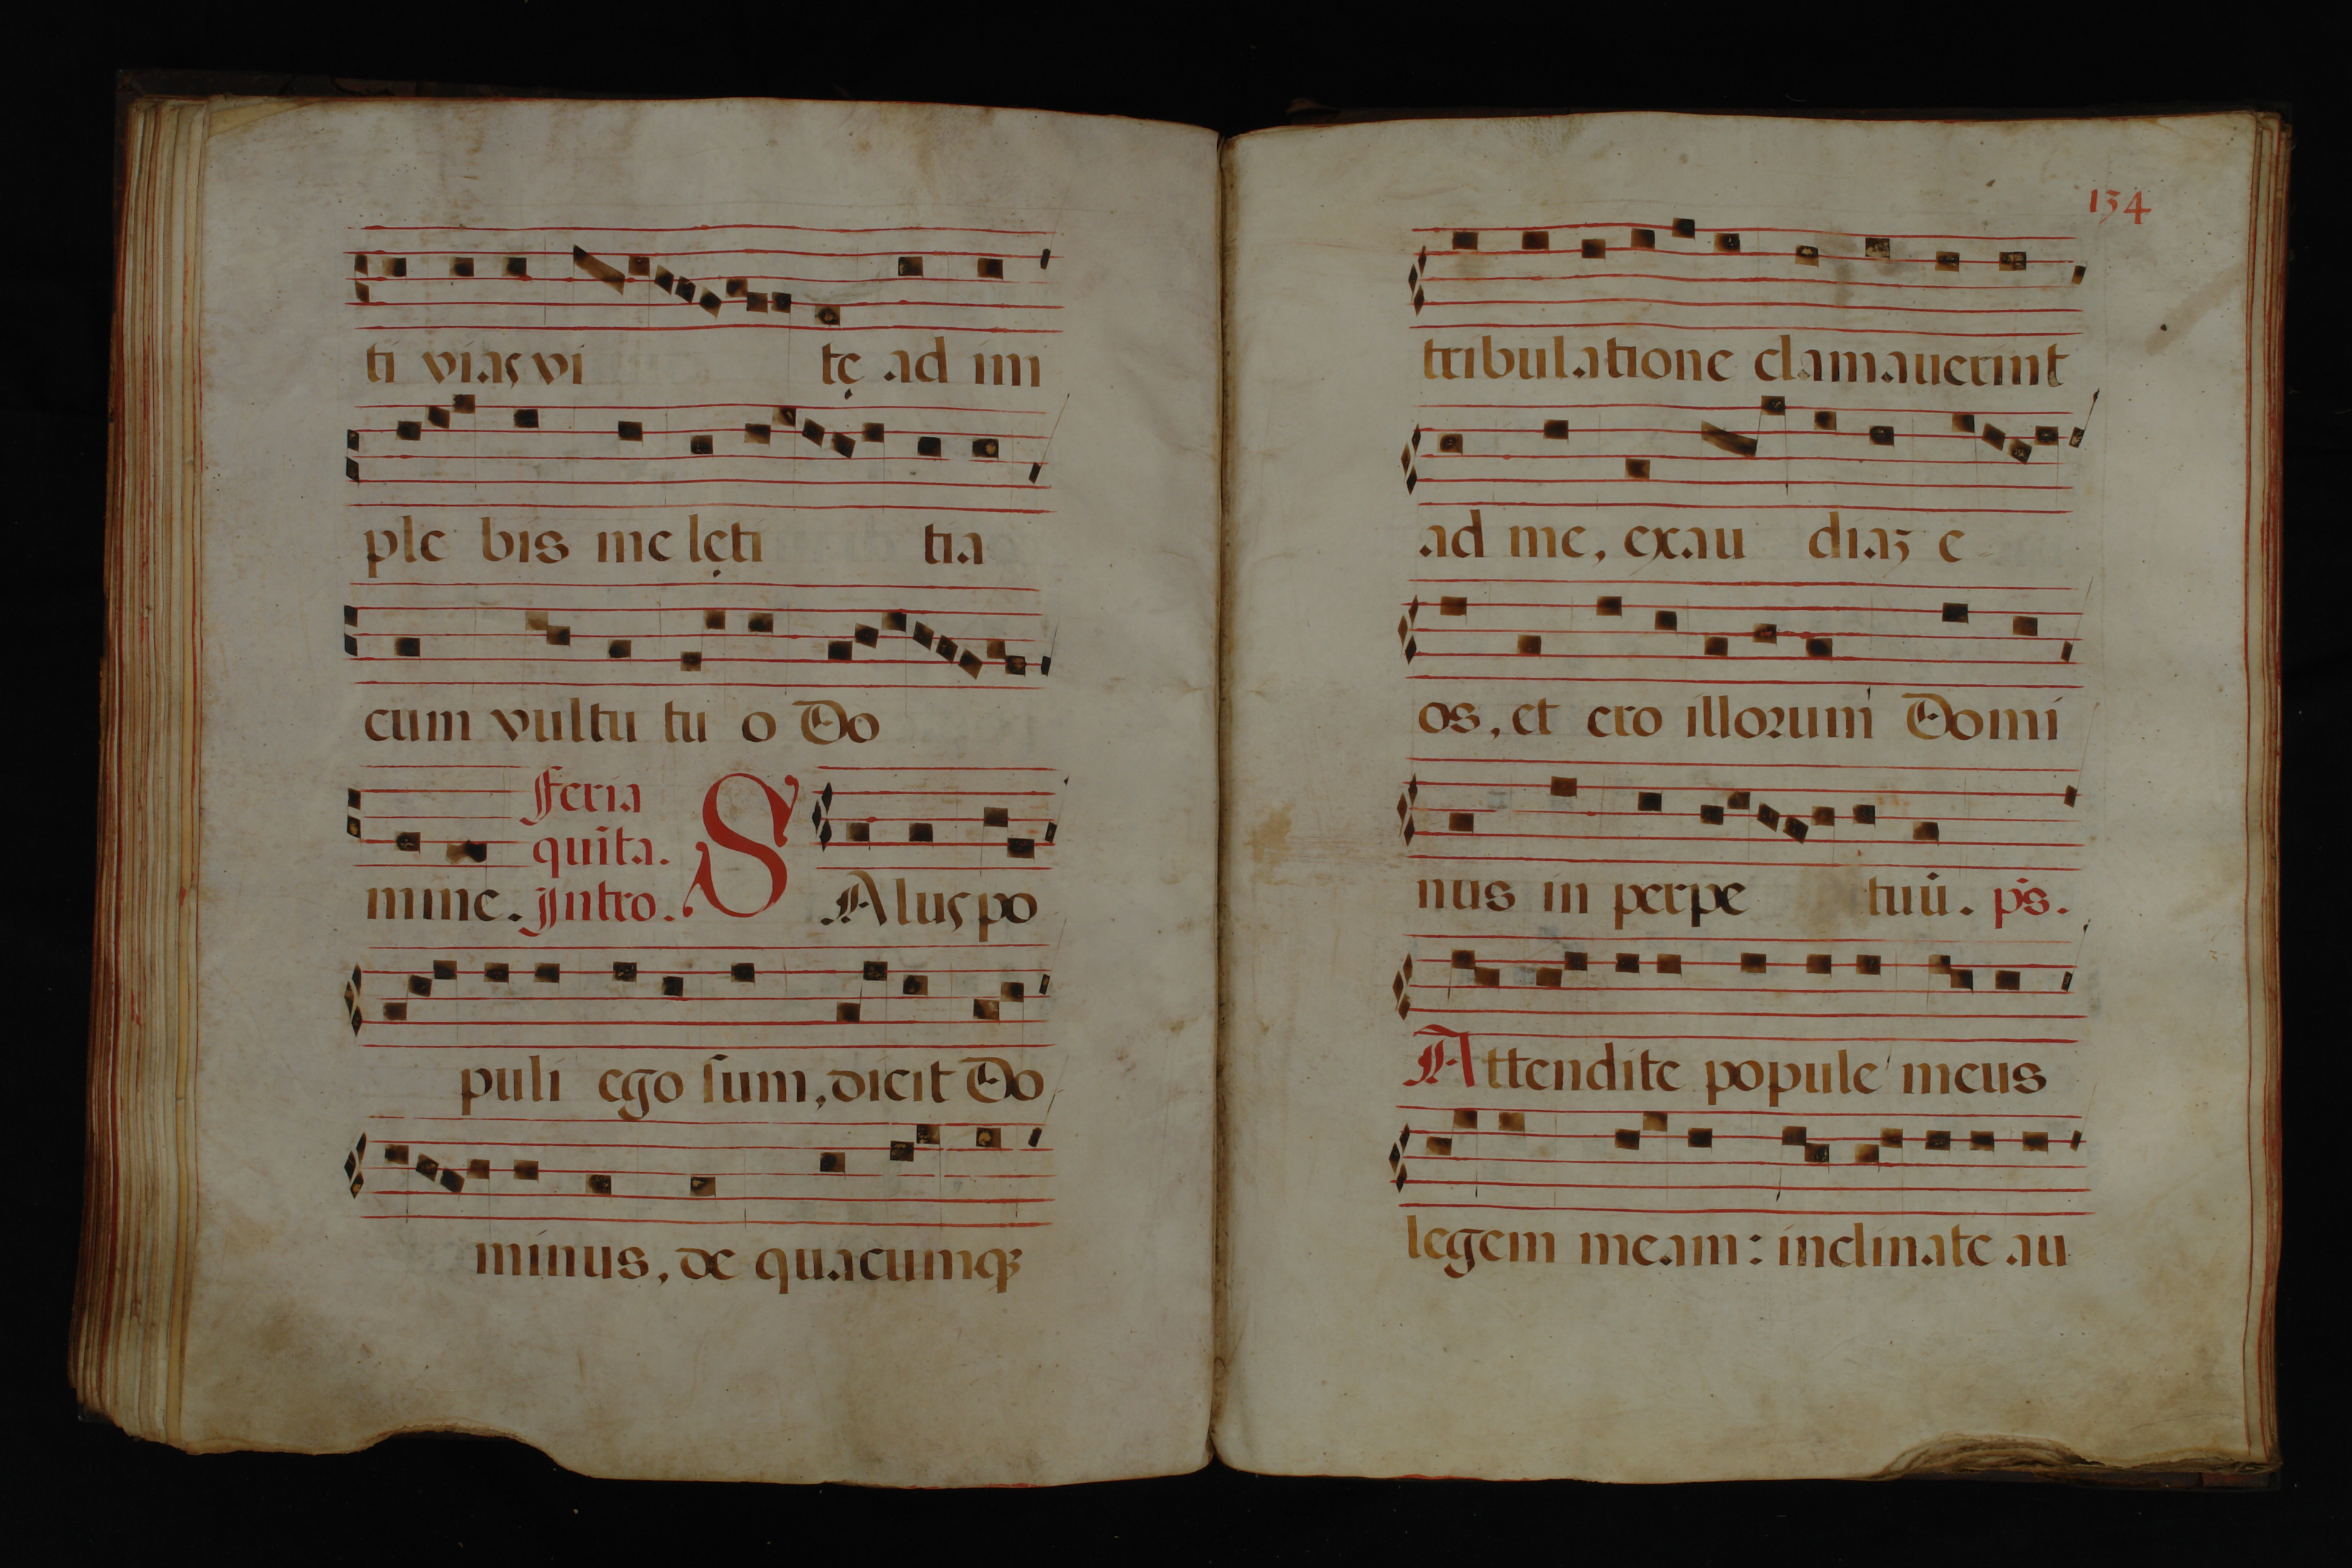 ti vias vi tę ad im
ple bis me lęti tia
cum vultu tu o Do
mine. Feria
quĩta.
Intro. SAlus po
puli ego sum, dicit Do
minus, de quacumqꝫ
134
tribulatione clamauerint
ad me, exau diaꝫ e
os, et ero illorum Domi
nus in perpe tuũ. p̃s.
Attendite popule meus
legem meam: inclinate au